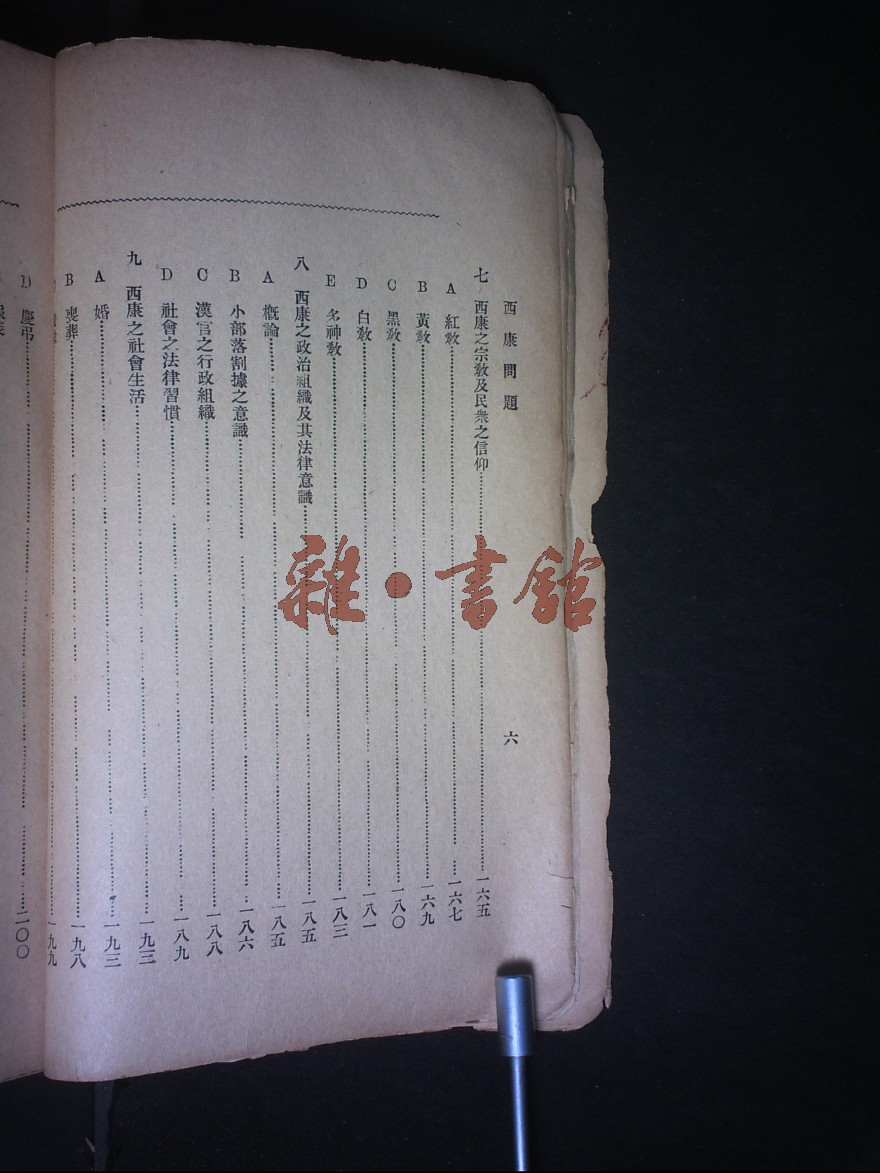 西康問題
六
七 西康之宗教及民衆之信仰……一六五
A 紅教……一六七
B 黃教……一六九
C 黑教……一八〇
D 白教……一八一
E 多神教……一八三
八 西康之政治組織及其法律意識……一八五
A 概論……一八五
B 小部落割據之意識……一八六
C 漢官之行政組織……一八八
D 社會之法律習慣……一八九
九 西康之社會生活……一九三
A 婚……一九三
B 喪葬……一九八
一九九
D 慶弔……二〇〇
雜·書館